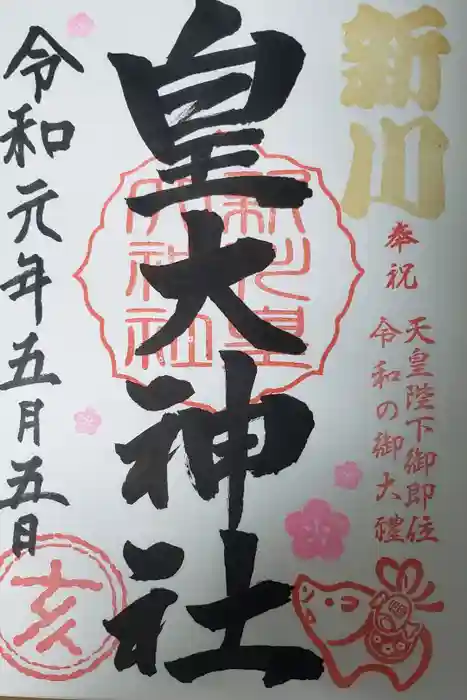 新川
奉祝
天皇陛下御即位
令和の御大禮
皇大神社
新川皇
大神社
令和元年五月五日
亥